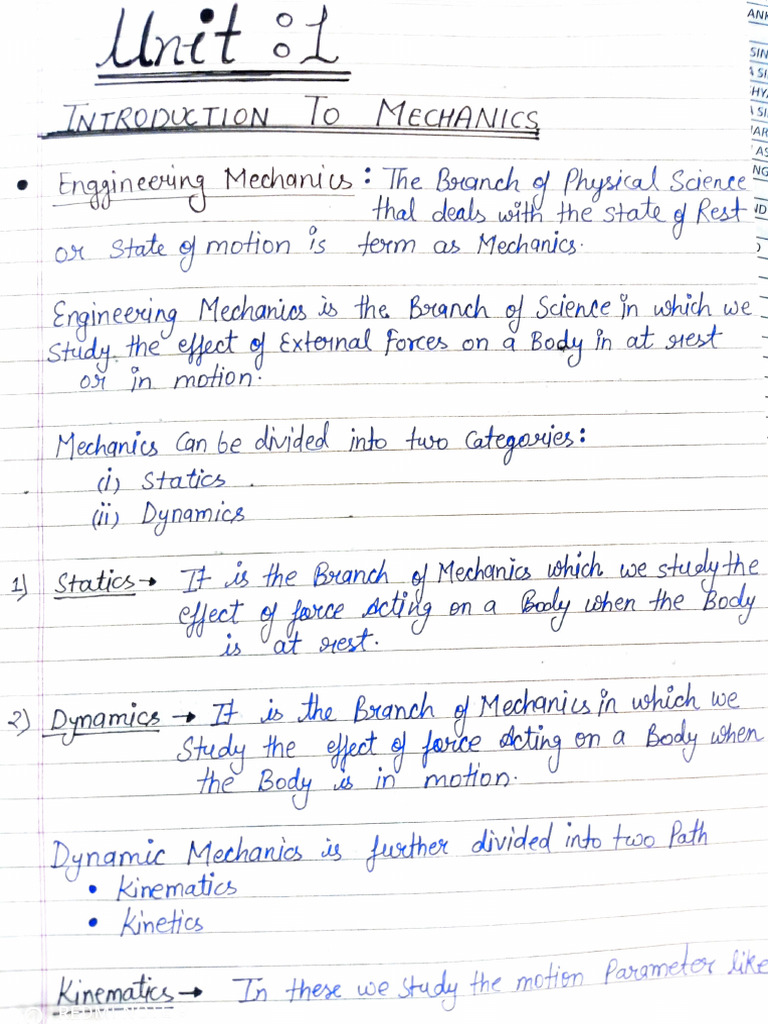 Unit : 1
INTRODUCTION TO MECHANICS
• Enggineering Mechanics : The Branch of Physical Science
that deals with the State of Rest
or State of motion is term as Mechanics.
Engineering Mechanics is the Branch of Science in which we
Study the effect of External Forces on a Body in at rest
or in motion.
Mechanics Can be divided into two Categories:
(i) Statics
(ii) Dynamics
1) Statics → It is the Branch of Mechanics which we study the
effect of force Acting on a Body when the Body
is at rest.
2) Dynamics → It is the Branch of Mechanics in which we
Study the effect of force Acting on a Body when
the Body is in motion.
Dynamic Mechanics is further divided into two Path
• Kinematics
• Kinetics
Kinematics → In these we Study the motion Parameter like